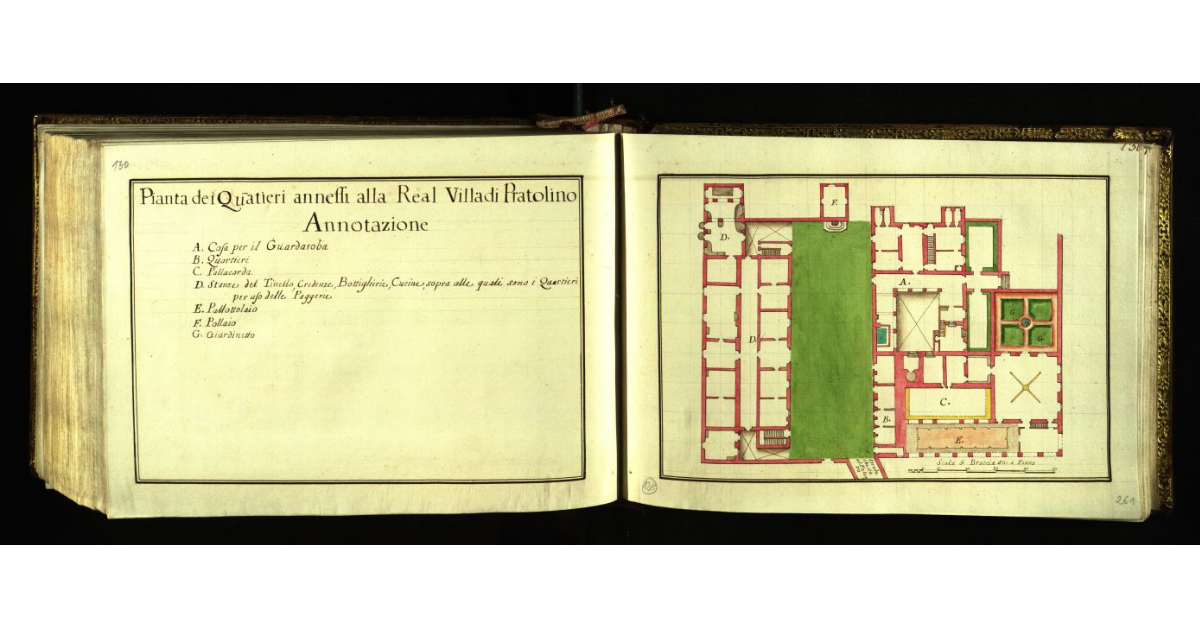 130
Pianta dei Quãtieri annessi alla Real Villa di Pratolino
Annotazione
A. Casa per il Guardaroba
B. Quartieri
C. Pallacorda
D. Stanze del Tinello, Credenze, Bottiglirie, Cucine, sopra alle quali sono i Quartieri
per uso delle Paggerie
E. Pallottolaio
F. Pollaio
G. Giardinetto
F.
D.
A.
G.
G
D.
C.
B.
E.
Scala di Braccia
261